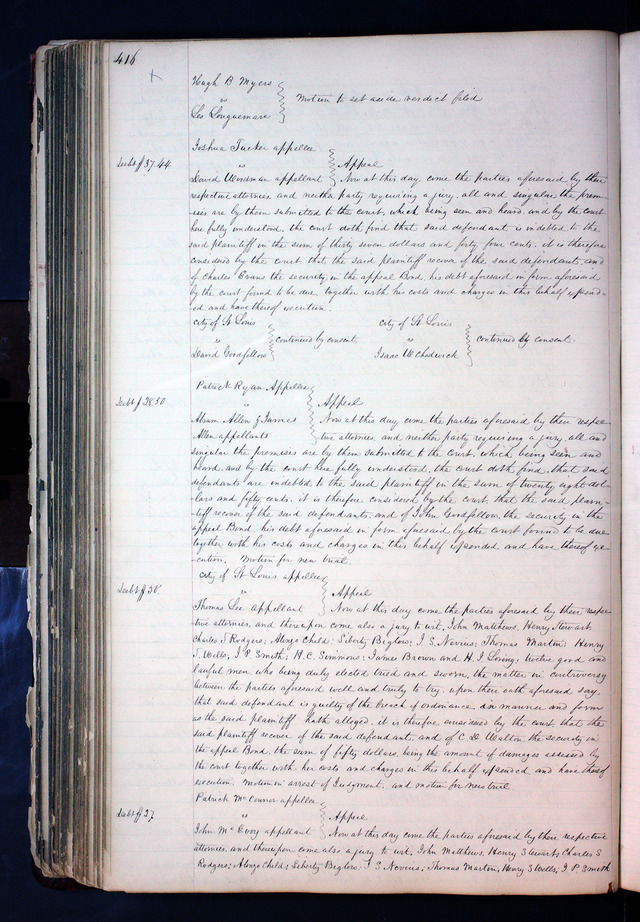 416
+
Hugh B Myers
vs
Motion to set aside verdict filed
Leo Longuemare
Joshua Tucker appellee
Debt $37.44
vs
Appeal
David Woodman appellant
Now at this day come the parties aforesaid by their
respective attornies, and neither party requiring a jury, all and singular the prem-
ises are by them submitted to the court, which being seen and heard, and by the court
here fully understood, the court doth find that said defendant is indebted to the
said plaintiff in the sum of thirty seven dollars and forty four cents, it is therefore
considered by the court that the said plaintiff recover of the said defendant, and
of Charles Evans the security in the appeal Bond, his debt aforesaid in form aforesaid
by the court found to be due, together with his costs and charges in this behalf expend-
ed and have thereof execution.
City of St Louis
City of St. Louis
vs
continued by consent
vs
continued by consent.
David Goodfellow
Isaac W Chadwick
Patrick Ryan Appellee
Debt $28.50
vs
Appeal
Abram Allen & James
Now at this day come the parties aforesaid by their respec-
Allen appellants
tive attornies, and neither party requiring a jury, all and
singular the premises are by them submitted to the court, which being seen and
heard, and by the court here fully understood, the court doth find, that said
defendants are indebted to the said plaintiff in the sum of twenty eight dol-
lars and fifty cents, it is therefore considered by the court, that the said plain-
tiff recover of the said defendants, and of John Goodfellow, the security in the
appeal Bond, his debt aforesaid in form aforesaid by the court found to be due
together with his costs and charges in this behalf expended and have thereof ex-
ecution. Motion for new trial
City of St Louis appellee
Debt $50
vs
Appeal
Thomas Lee appellant
Now at this day come the parties aforesaid by their respec
tive attornies, and thereupon come also a jury to wit, John Matthews, Henry Stewart,
Charles S Rodgers; Alonzo Child; Liberty Biglow; I. S. Nevius; Thomas Marton; Henry
S. Wells, I P. Smith; H. C. Simmons; James Brown and H. I Loring; twelve good and
lawful men who being duly elected tried and sworn, the matter in controversy
between the parties aforesaid well and truly to try, upon their oath aforesaid say,
that said defendant is guilty of the breach of ordinance in manner and form
as the said plaintiff hath alleged, it is therefore considered by the court, that the
said plaintiff recover of the said defendant, and of C. D. Walton the security in
the appeal Bond, the sum of fifty dollars, being the amount of damages assessed by
the court together with her costs and charges in this behalf expended and have thereof
execution. Motion in arrest of Judgment, and motion for new trial
Patrick McConnor appellee
Debt $27
vs
Appeal
John McEvoy appellant
Now at this day come the parties aforesaid by their respective
attornies, and thereupon come also a jury to wit, John Matthews, Henry Stewart; Charles S
Rodgers; Alonzo Child; Liberty Biglow; I S Nevius; Thomas Marton, Henry S Wells; I P. Smith